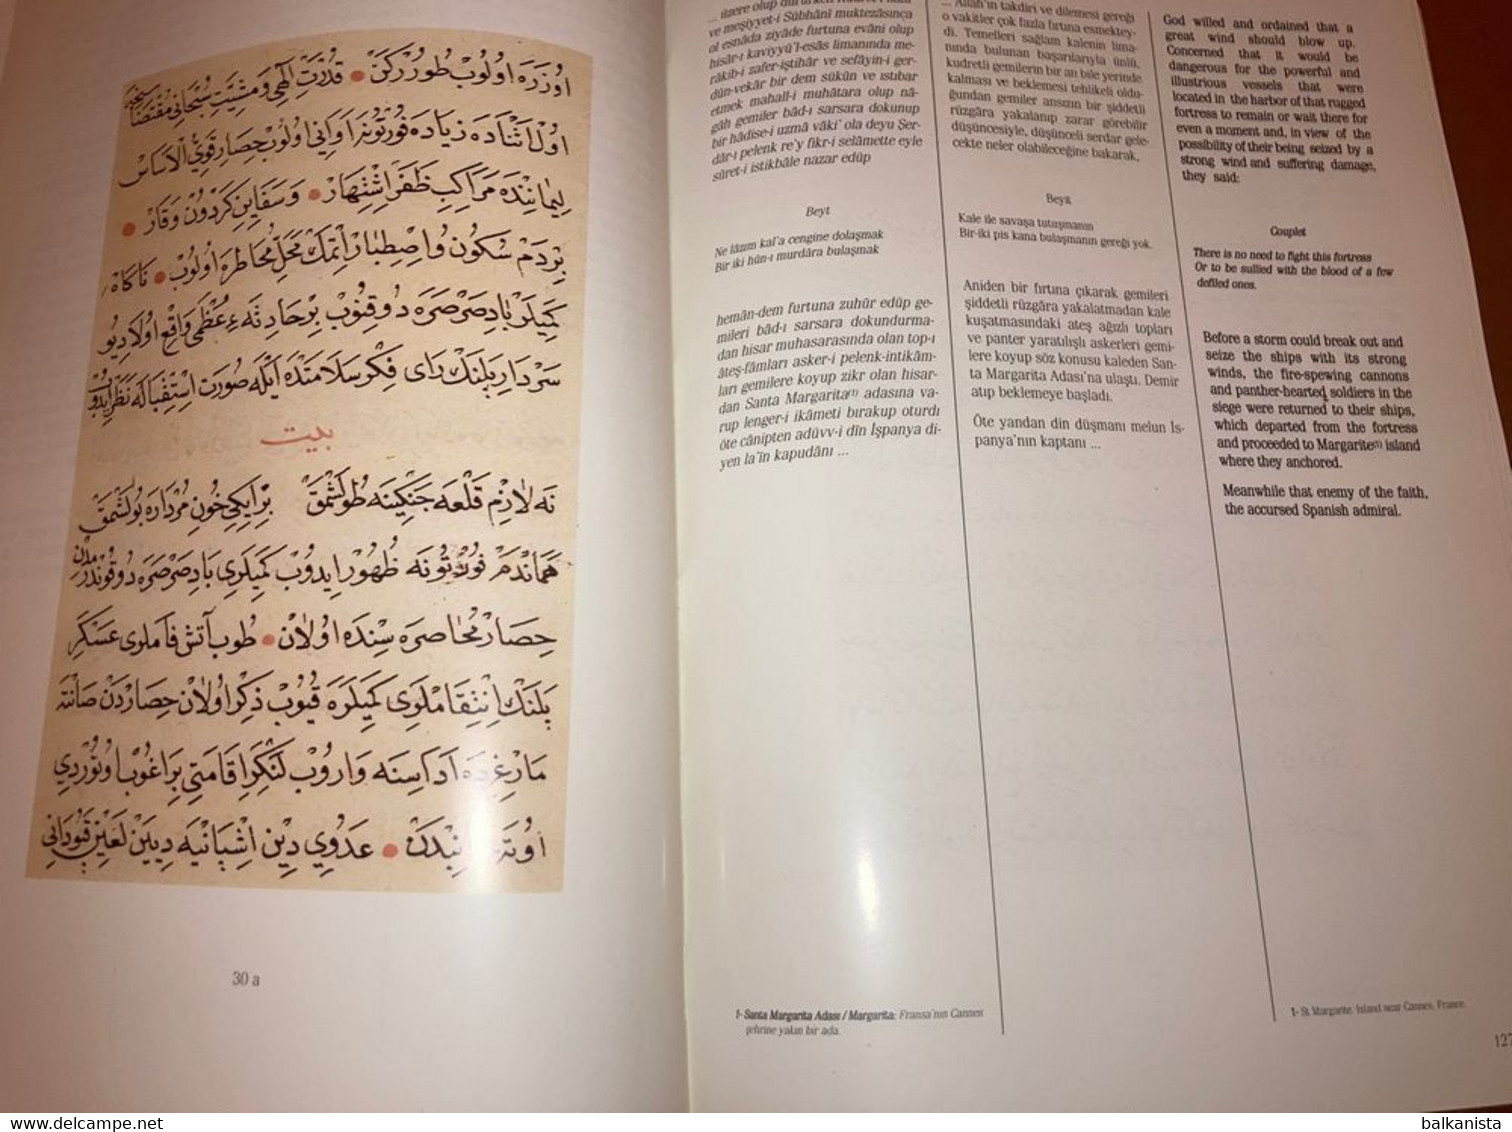 اوزره اولوب طورركن • قدرت الهى ومشيت سبحانى مقتضاسنجه
اول اثناده زياده فورتونه اوانى اولوب حصار قوى الاساس
ليماننده مراكب ظفر اشتهار • وسفاين كردون وقار •
بردم سكون واصطبار اتمك محل مخاطره اولوب • ناكاه
كميلر باد صرصره دوقنوب بر حادثهء عظمى واقع اولا ديو
سردار پلنك راى فكر سلامتده ايله صورت استقباله نظر ايدوب
بيت
نه لازم قلعه جنكينه طولشمق    بر ايكى خون مرداره بولشمق
هماندم فورتونه ظهور ايدوب كميلرى باد صرصره دوقوندرمدن
حصار محاصره سنده اولان • طوب آتش فاملرى عسكر
پلنك انتقاملرى كميلره قيوب ذكر اولان حصاردن صانته
مارغريده اداسنه واروب لنكر اقامتى براغوب اوتوردى
• عدوى دين اشپانيه ديين لعين قپودانى
30 a
ve meşiyyet-i Sübhânî muktezâsınca
ol esnâda ziyâde furtuna evâni olup
hisâr-ı kaviyyü'l-esâs limanında me-
râkib-i zafer-iştihâr ve sefâyin-i ger-
dûn-vekâr bir dem sükûn ve ıstıbar
etmek mahall-i muhâtara olup nâ-
gâh gemiler bâd-ı sarsara dokunup
bir hâdise-i uzmâ vâki' ola deyu Ser-
dâr-ı pelenk re'y fikr-i selâmette eyle
sûret-i istikbâle nazar edüp
Beyt
Ne lâzım kal'a cengine dolaşmak
Bir iki hûn-ı murdâra bulaşmak
hemân-dem furtuna zuhûr edüp ge-
mileri bâd-ı sarsara dokundurma-
dan hisar muhasarasında olan top-ı
âteş-fâmları asker-i pelenk-intikâm-
ları gemilere koyup zikr olan hisar-
dan Santa Margarita(1) adasına va-
rup lenger-i ikâmeti bırakup oturdı
öte cânipten adüvv-i dîn İşpanya di-
yen la'în kapudânı ...
1- Santa Margarita Adası / Margarita: Fransa'nın Cannes
şehrine yakın bir ada.
... Allah'ın takdiri ve dilemesi gereği
o vakitler çok fazla fırtına esmektey-
di. Temelleri sağlam kalenin lima-
nında bulunan başarılarıyla ünlü,
kudretli gemilerin bir an bile yerinde
kalması ve beklemesi tehlikeli oldu-
ğundan gemiler ansızın bir şiddetli
rüzgâra yakalanıp zarar görebilir
düşüncesiyle, düşünceli serdar gele-
cekte neler olabileceğine bakarak,
Beyit
Kale ile savaşa tutuşmanın
Bir-iki pis kana bulaşmanın gereği yok.
Aniden bir fırtına çıkarak gemileri
şiddetli rüzgâra yakalatmadan kale
kuşatmasındaki ateş ağızlı topları
ve panter yaratılışlı askerleri gemi-
lere koyup söz konusu kaleden San-
ta Margarita Adası'na ulaştı. Demir
atıp beklemeye başladı.
Öte yandan din düşmanı melun İs-
panya'nın kaptanı ...
God willed and ordained that a
great wind should blow up.
Concerned that it would be
dangerous for the powerful and
illustrious vessels that were
located in the harbor of that rugged
fortress to remain or wait there for
even a moment and, in view of the
possibility of their being seized by a
strong wind and suffering damage,
they said:
Couplet
There is no need to fight this fortress
Or to be sullied with the blood of a few
defiled ones.
Before a storm could break out and
seize the ships with its strong
winds, the fire-spewing cannons
and panther-hearted soldiers in the
siege were returned to their ships,
which departed from the fortress
and proceeded to Margarite(1) island
where they anchored.
Meanwhile that enemy of the faith,
the accursed Spanish admiral.
1- St Margarite: Island near Cannes, France.
127
balkanista